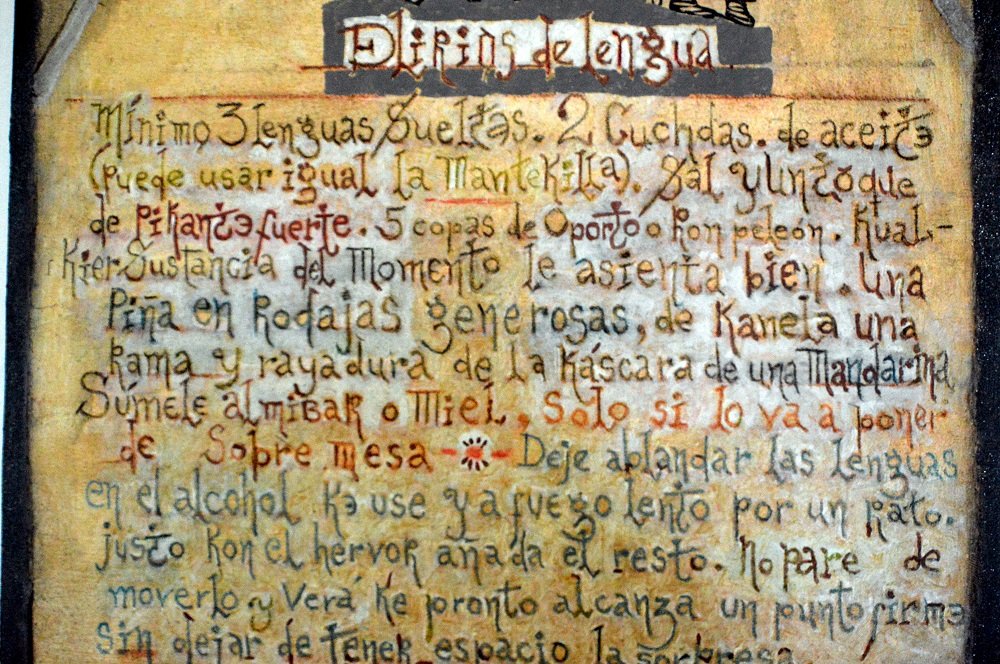 Elirios de lengua
Mínimo 3 lenguas Sueltas. 2 Cuchdas. de aceite
(puede usar igual la Mantekilla). Sal y un toque
de Pikante fuerte. 5 copas de Oporto o Ron peleón. Kual-
kier Sustancia del Momento le asienta bien. Una
Piña en Rodajas generosas, de Kanela una
Rama y rayadura de la Káscara de una Mandarina
Súmele almíbar o Miel, Solo si lo va a poner
de Sobre mesa - Deje ablandar las lenguas
en el alcohol ke use y a fuego lento por un Rato.
justo kon el hervor añada el resto. No pare de
moverlo. y Verá ke pronto alcanza un punto firme
Sin dejar de tener espacio la sorpresa